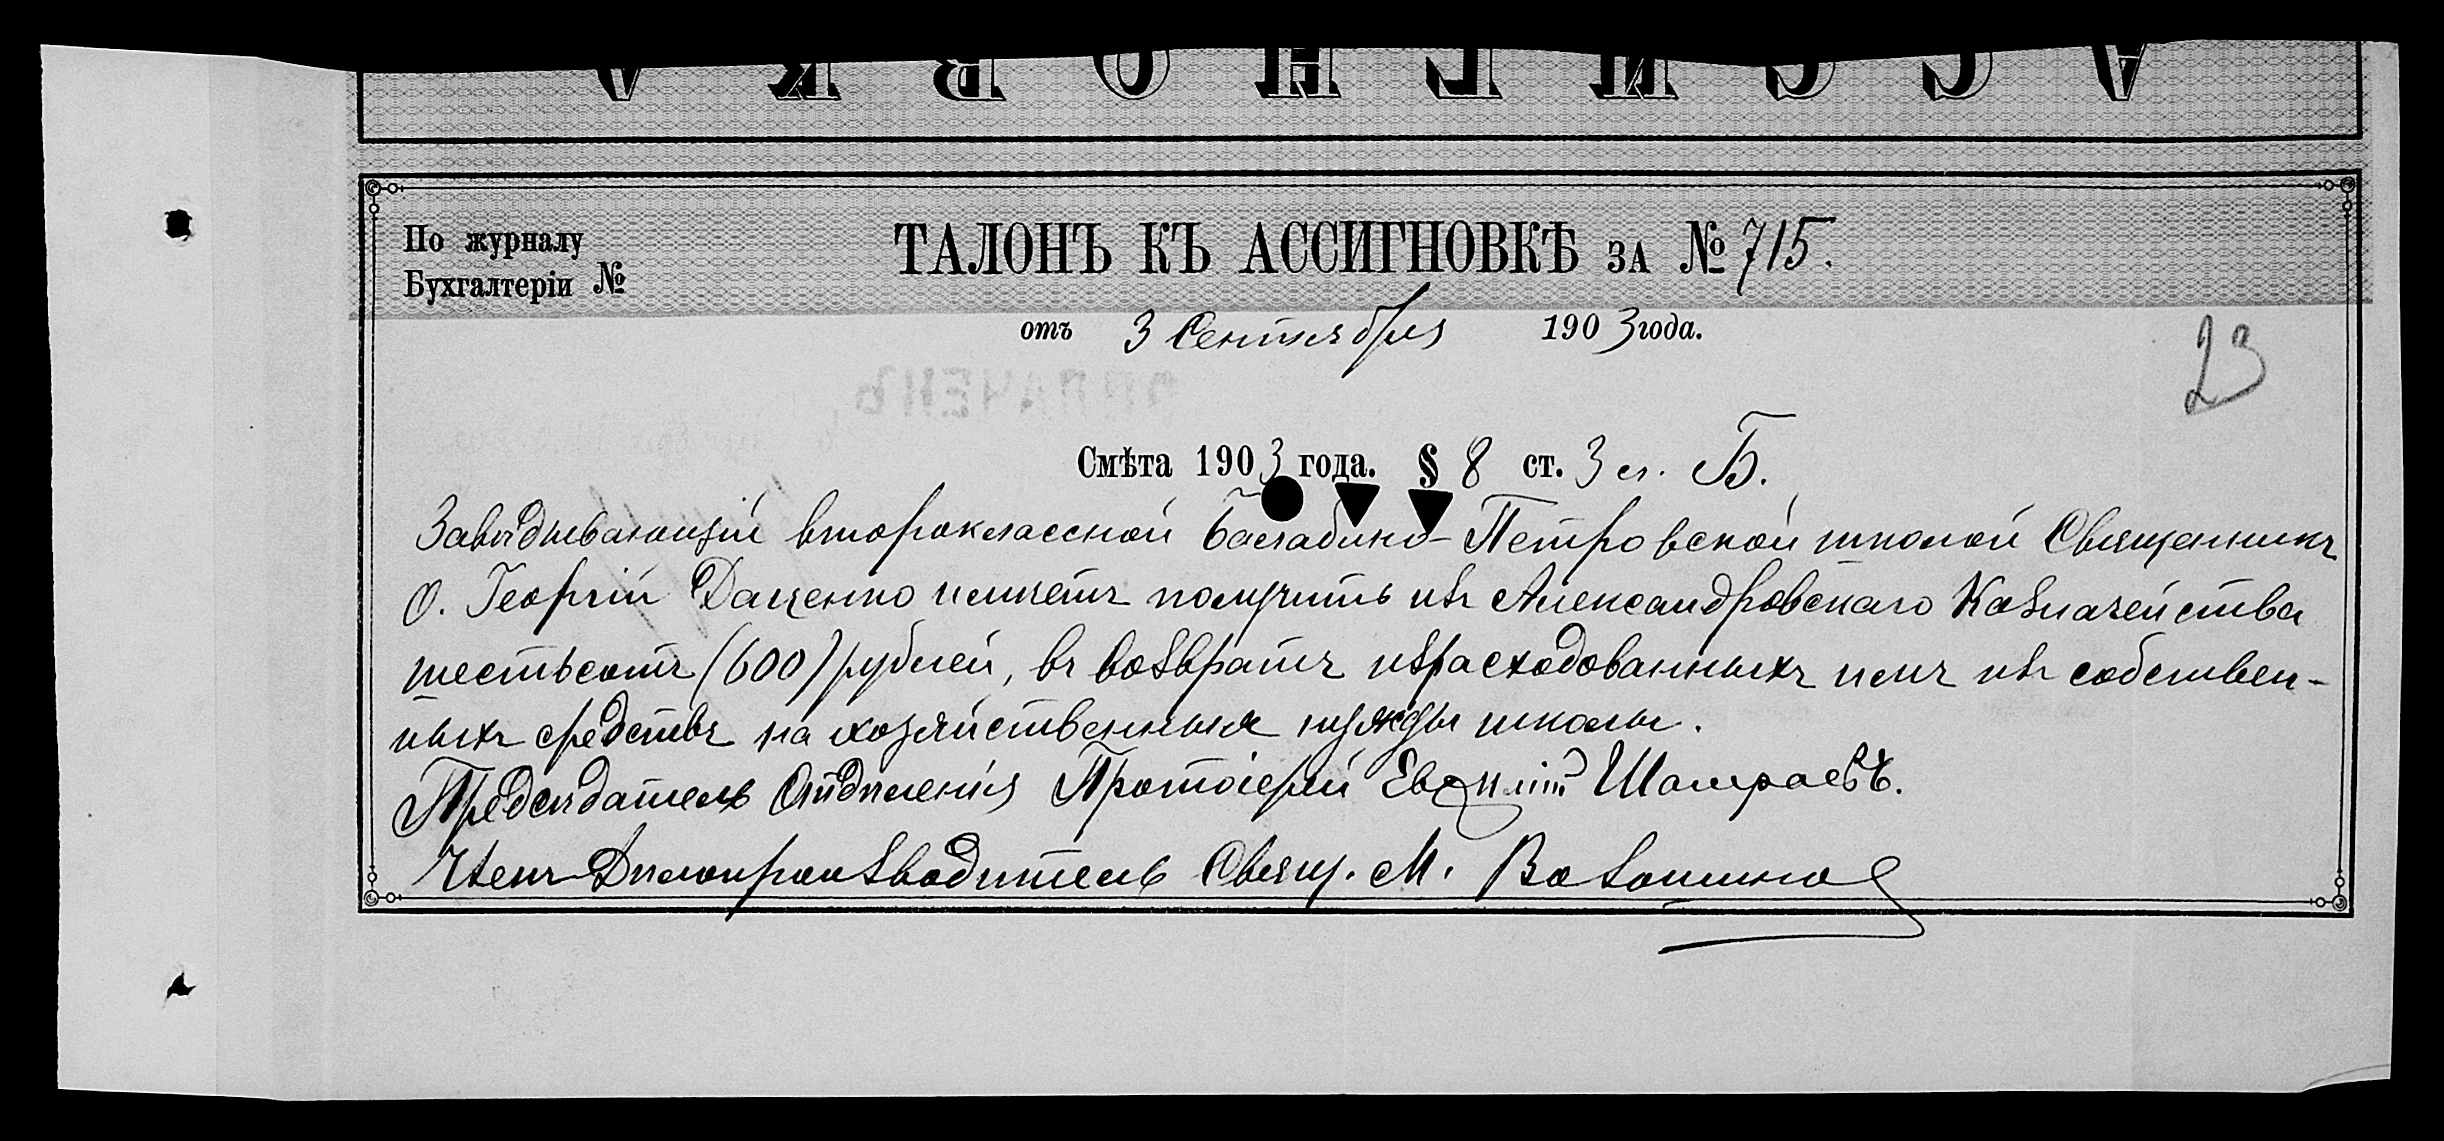 АССИГНОВКА
По журналу
Бухгалтеріи №
ТАЛОНЪ КЪ АССИГНОВКѢ ЗА № 715.
отъ 3 Сентября 1903 года.
23
ОПЛАЧЕНЪ
Смѣта 1903 года. § 8 ст. 3 л. Б.
Завѣдывающій второклассной Балабино-Петровской школой Священникъ
О. Георгій Даценко имѣетъ получить изъ Александровскаго Казначейства
шестьсотъ (600) рублей, въ возвратъ израсходованныхъ имъ изъ собствен-
ныхъ средствъ на хозяйственныя нужды школы.
Предсѣдатель Отдѣленія Протоіерей Шамраевъ.
Членъ-Дѣлопроизводитель Свящ. М.